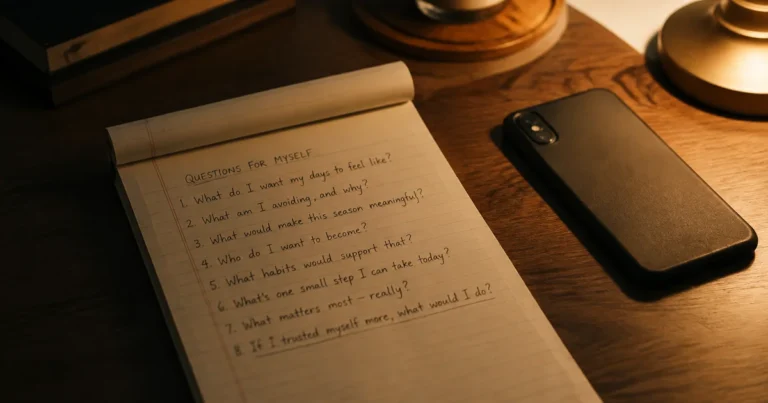 QUESTIONS FOR MYSELF
1. What do I want my days to feel like?
2. What am I avoiding, and why?
3. What would make this season meaningful?
4. Who do I want to become?
5. What habits would support that?
6. What's one small step I can take today?
7. What matters most – really?
8. If I trusted myself more, what would I do?